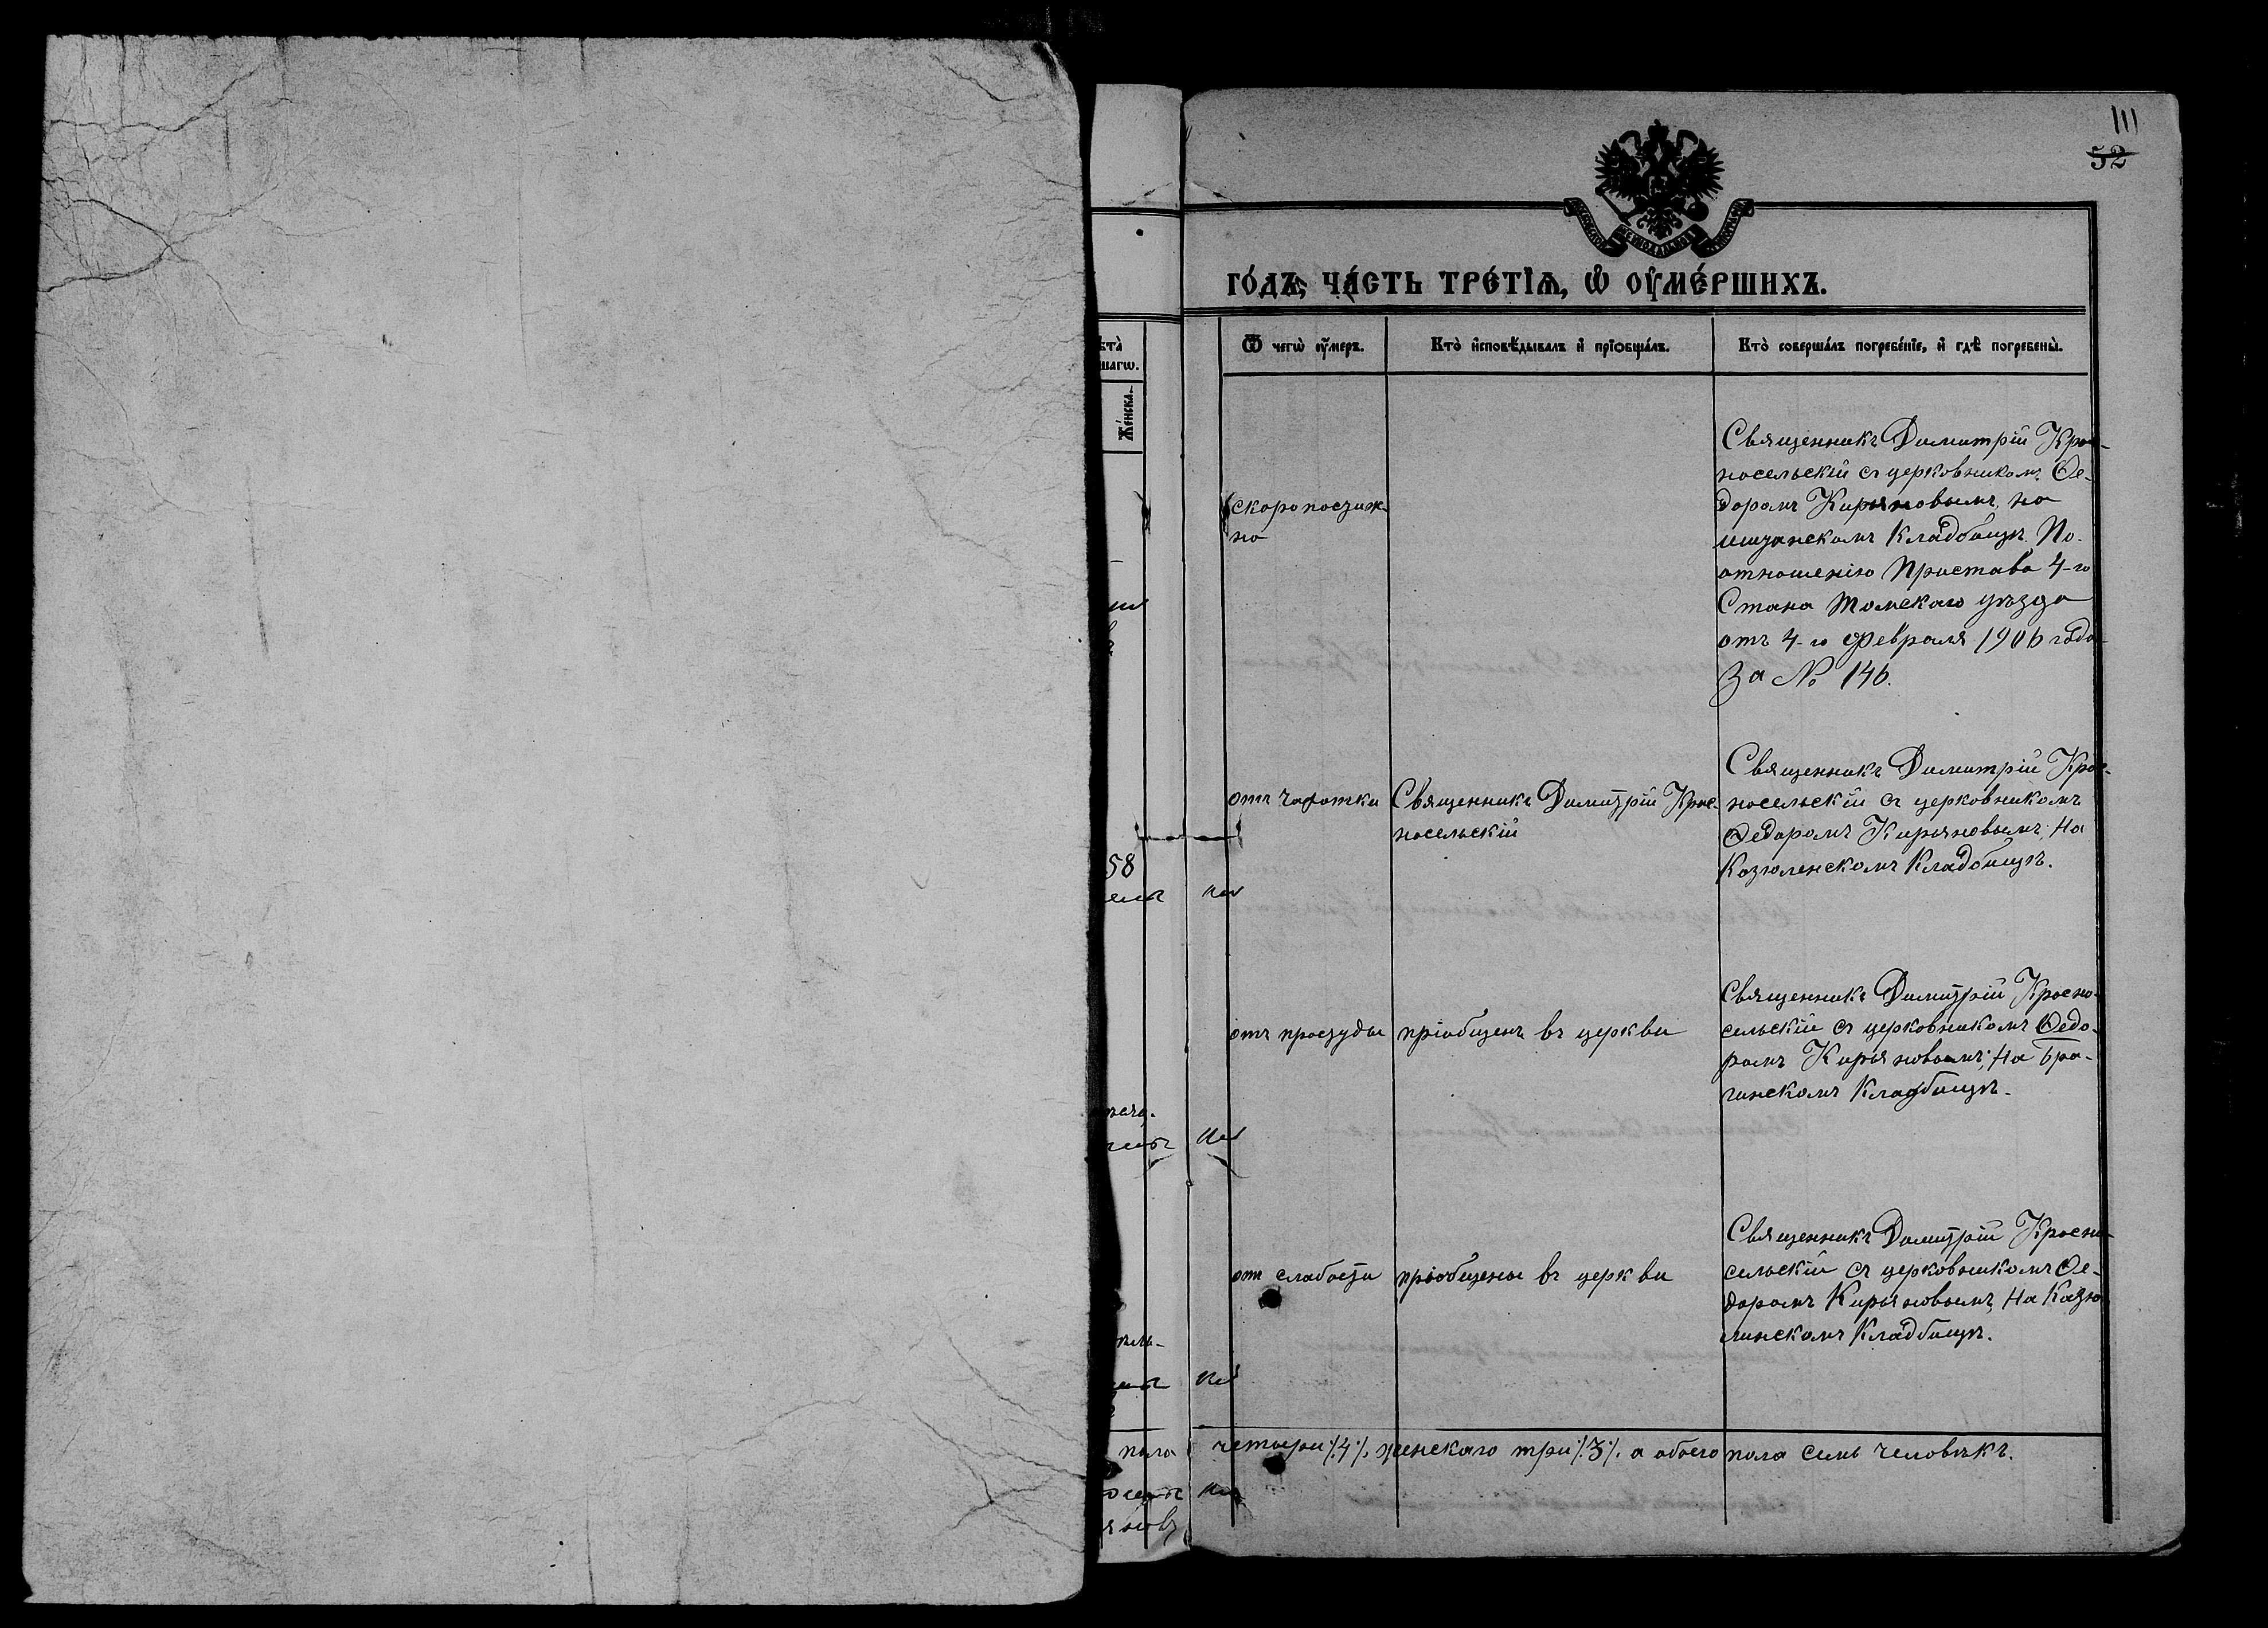 111
52
годъ, часть третїѧ, ѡ оумершихъ.
Ѿ чегѡ оумеръ.
Кто исповѣдывалъ и прїобщалъ.
Кто совершалъ погребенїе, и гдѣ погребены.
шагѡ.
Женска-
Скоропостиж-
но
Священникъ Димитрій Крас-
носельскій съ церковникомъ Ѳе-
доромъ Кирьяновымъ, на
кладбищѣ. По
отношенію Пристава 4-го
Стана Томскаго уѣзда
отъ 4-го Февраля 1906 года
За № 146.
отъ чахотки
Священникъ Димитрій Крас-
носельскій
Священникъ Димитрій Крас-
носельскій съ церковникомъ
Ѳедоромъ Кирьяновымъ; на
Козюленскомъ Кладбищѣ.
58
отъ простуды
пріобщенъ въ церкви
Священникъ Димитрій Красно-
сельскій съ церковникомъ Ѳедо-
ромъ Кирьяновымъ; на Бра-
гинскомъ Кладбищѣ.
отъ слабости
пріобщены въ церкви
Священникъ Димитрій Красно-
сельскій съ церковникомъ Ѳе-
доромъ Кирьяновымъ, на Козю
линскомъ Кладбищѣ.
пола четыри ./.4./. женскаго три ./.3./. а обоего пола семь человѣкъ.